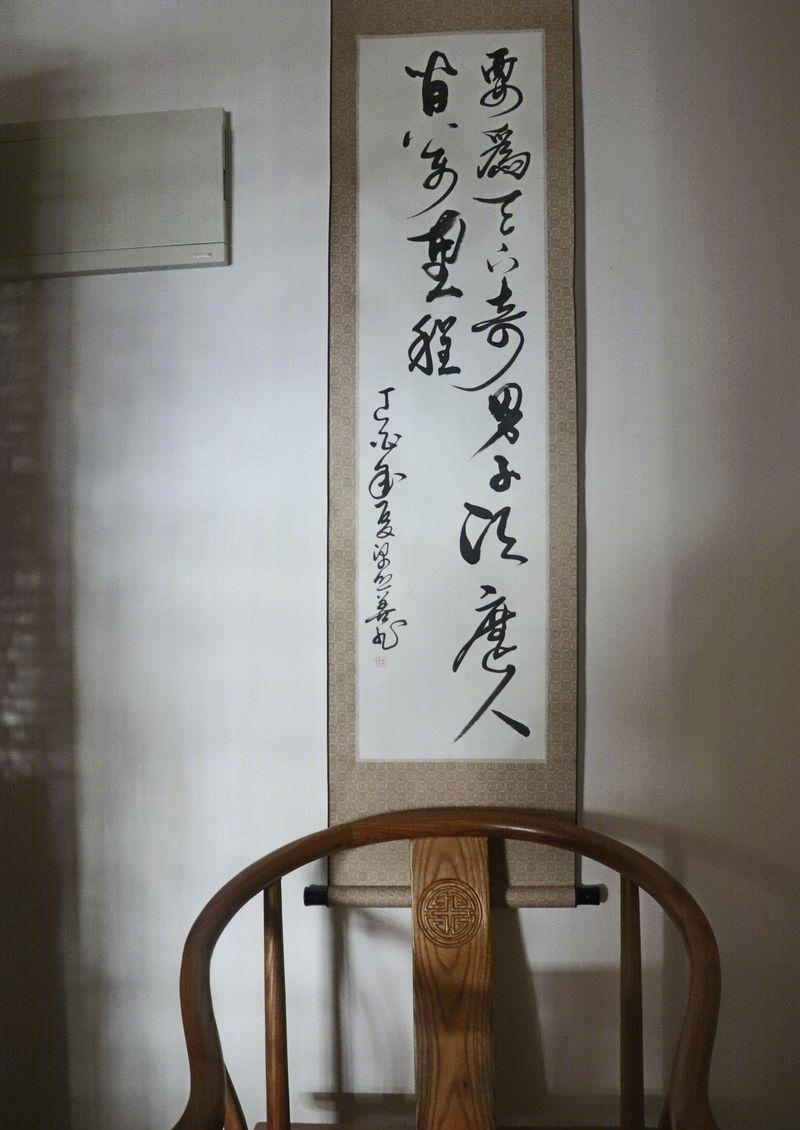 要為天下奇男子須歷人
間萬里程
丁酉年夏